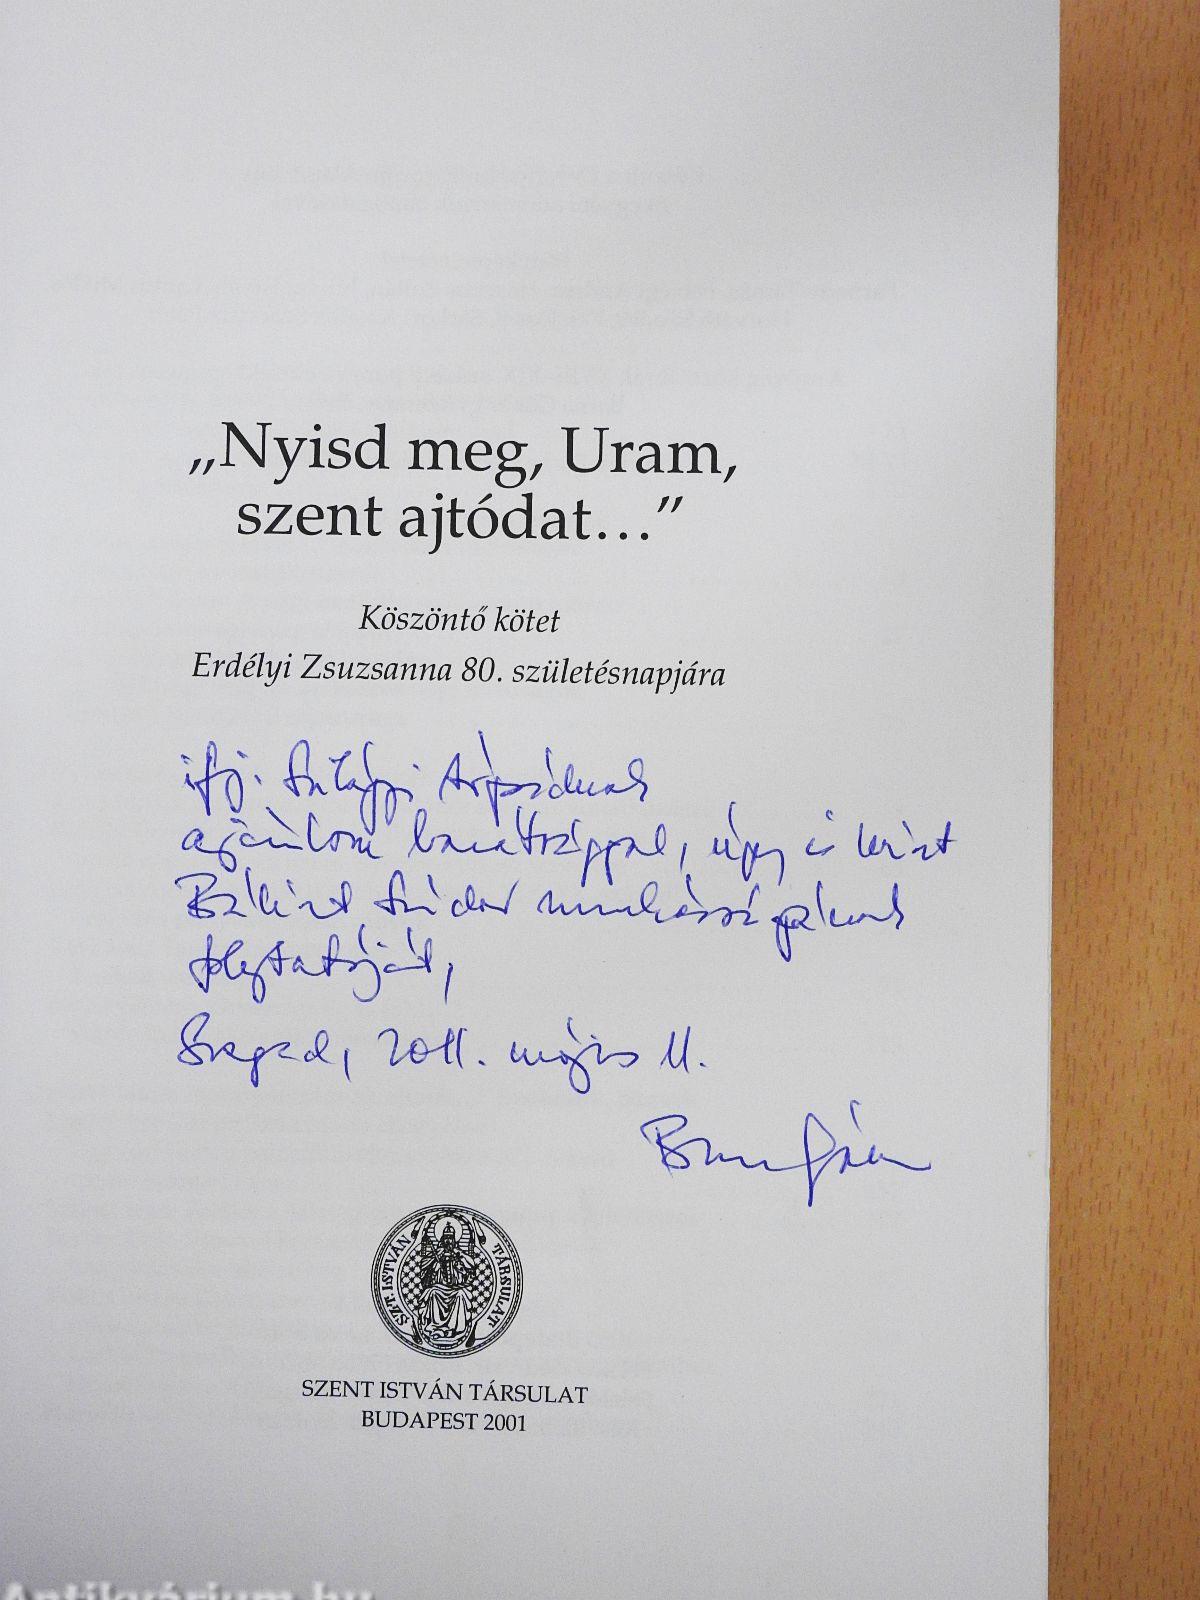 „Nyisd meg, Uram,
szent ajtódat…”
Köszöntő kötet
Erdélyi Zsuzsanna 80. születésnapjára
ifj. Szilágyi Árpádnak
ajánlom barátsággal, úgy is mint
Bálint Sándor munkásságának
folytatóját,
Szeged, 2011. május 11.
SZT. ISTVÁN TÁRSULAT
SZENT ISTVÁN TÁRSULAT
BUDAPEST 2001
Antikvárium.hu